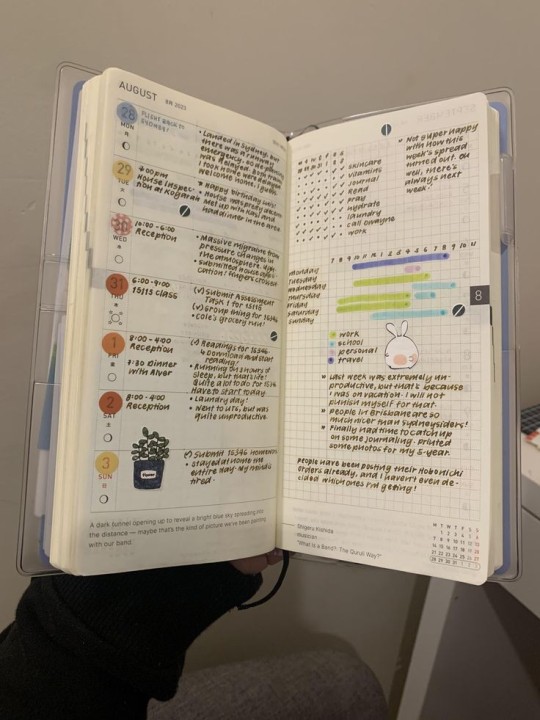 AUGUST 8月 2023
28
MON
FLIGHT BACK TO
SYDNEY!
• Landed in Sydney, but
there was a runway
emergency, so the landing
was delayed. Both trains
I took home were delayed.
Welcome home, I guess.
29
TUE
4:00pm
House inspec-
tion at Kogarah
• Happy birthday Luis!
• House was pretty decent
• Met up with Kasi and
had dinner in the area
30
WED
10:00 - 6:00
Reception
• Massive migraine from
pressure changes in
the atmosphere.
• submitted house appli-
cation! fingers crossed
31
THU
6:00 - 9:00
15115 CLASS
(✓) Submit Assessment
Task 1 for 15115
(✓) Group thing for 16346
• Coles grocery run!
1
FRI
8:00 - 4:00
Reception
7:30 Dinner
with Alver
(✓) Readings for 16346
↳ Download and start
reading!
• Running on 3 hours of
sleep, but that's life!
Quite a lot to do for 15146
Have to start today.
2
SAT
8:00 - 4:00
Reception
• Laundry day!
• Went to UTS, but was
quite unproductive
3
SUN
(✓) Submit 16346 homework
• stayed at home the
entire day. My mind is
tired.
A dark tunnel opening up to reveal a bright blue sky spreading into
the distance — maybe that's the kind of picture we've been painting
with our band.
M T W T F S S
skincare
vitamins
journal
read
pray
hydrate
laundry
call Dwayne
work
• Not super happy
with how this
week's spread
turned out. Oh
well, there's
always next
week!
7 8 9 10 11 12 1 2 3 4 5 6 7 8 9 10 11
Monday
Tuesday
Wednesday
Thursday
Friday
Saturday
Sunday
8
work
school
personal
travel
» Last week was extremely un-
productive, but that's because
I was on vacation. I will not
punish myself for that.
» People in Brisbane are so
much nicer than Sydneysiders!
» Finally had time to catch up
on some journaling. Printed
some photos for my 5-year.
People have been posting their Hobonichi
orders already, and I haven't even de-
cided which ones I'm getting!
Shigeru Kishida
musician
"What Is a Band?: The Quruli Way?"
M T W T F S S
1 2 3 4 5 6
7 8 9 10 11 12 13
14 15 16 17 18 19 20
21 22 23 24 25 26 27
28 29 30 31 1 2 3